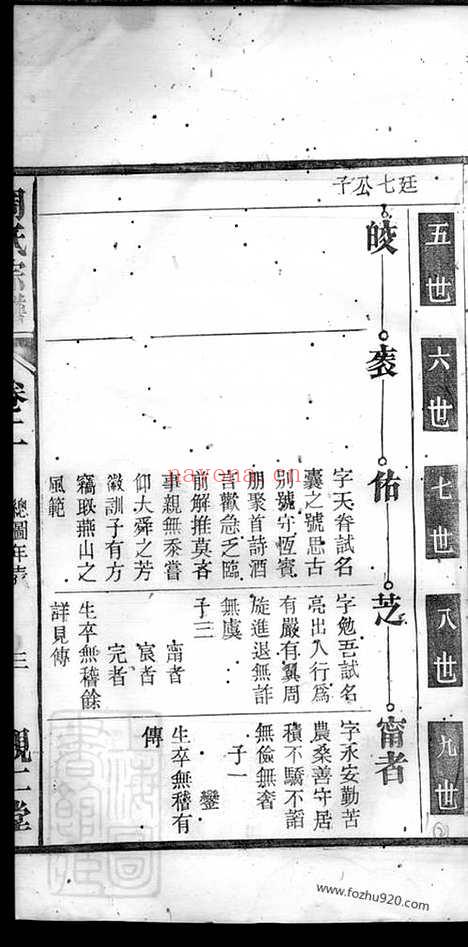 五世
六世
七世
八世
九世
廷七公子
皎
袠
佑
芝
甯者
字天眷試名
囊之號思古
別號守恆賓
朋聚首詩酒
言歡急乏臨
前解推莫吝
事親無忝嘗
仰大舜之芳
徽訓子有方
竊取燕山之
風範
字勉吾試名
亮出入行爲
有嚴有翼周
旋進退無詐
無虞
子三
甯者
完者
生卒無稽餘
詳見傳
字永安勤苦
農桑善守居
積不驕不諂
無儉無奢
子一
鑾
生卒無稽有
傳
周氏宗譜
卷二
總圖年表
三
觀仁堂
nayena.cn
www.fozhu920.com